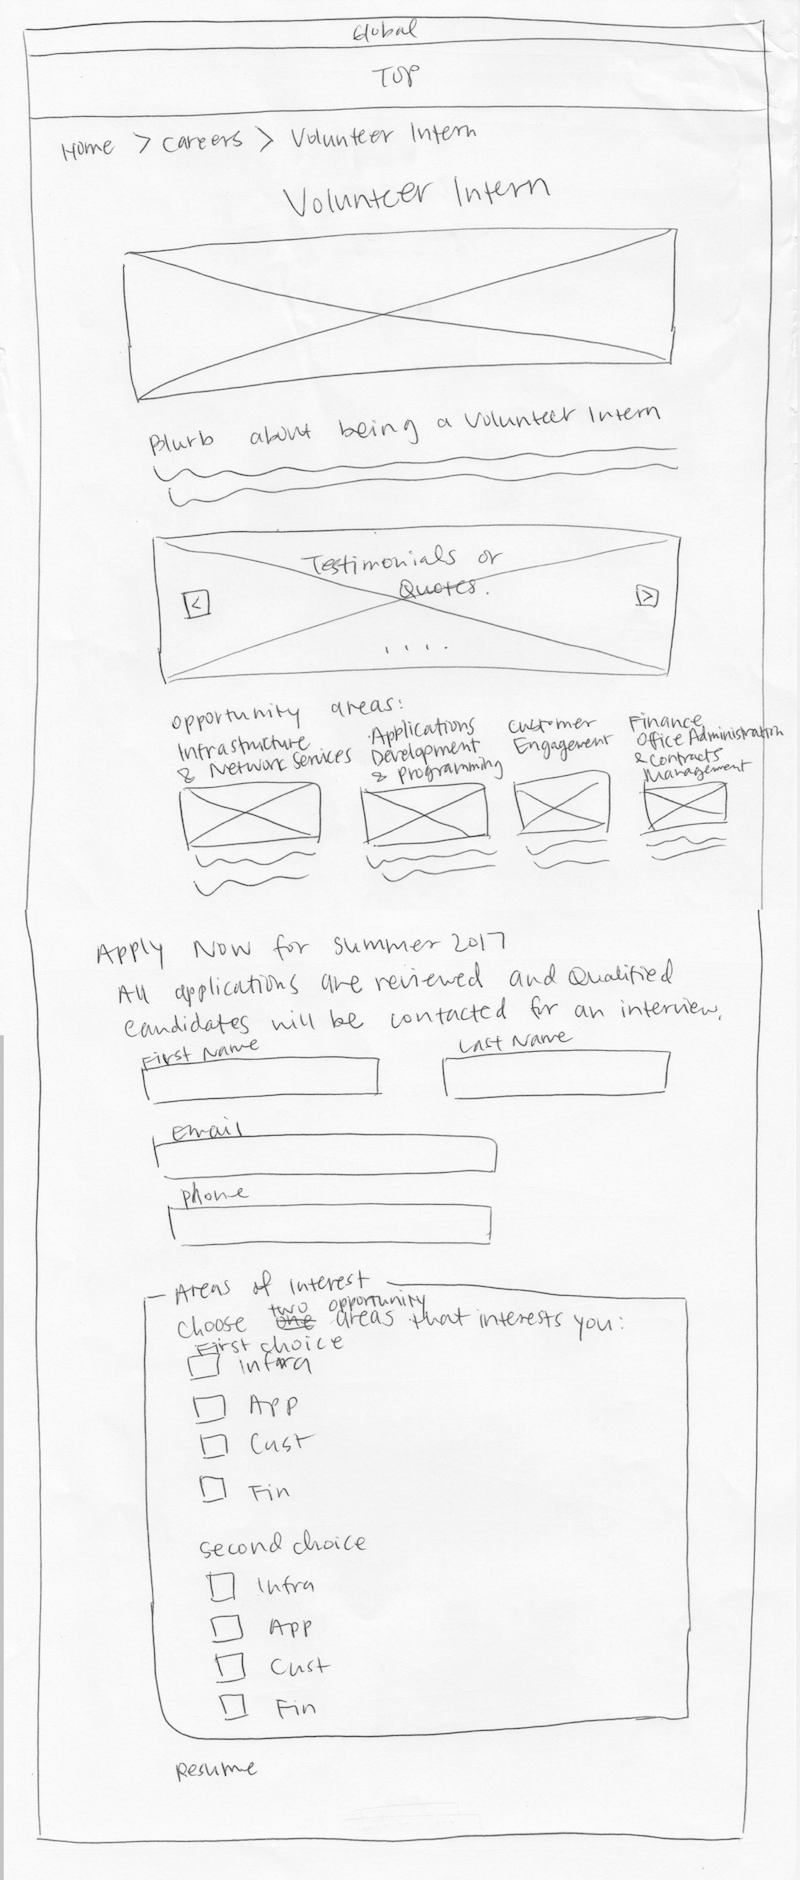 Global
TOP
Home > Careers > Volunteer Intern
Volunteer Intern
Blurb about being a Volunteer Intern
Testimonials or
Quotes.
<
>
....
Opportunity areas:
Infrastructure
& Network Services
Applications
Development
& Programming
Customer
Engagement
Finance
Office Administration
& Contracts
Management
Apply Now for Summer 2017
All applications are reviewed and Qualified
candidates will be contacted for an interview.
First Name
Last Name
Email
Phone
Areas of Interest
Choose two opportunity areas that interests you:
First choice
Infra
App
Cust
Fin
Second choice
Infra
App
Cust
Fin
Resume